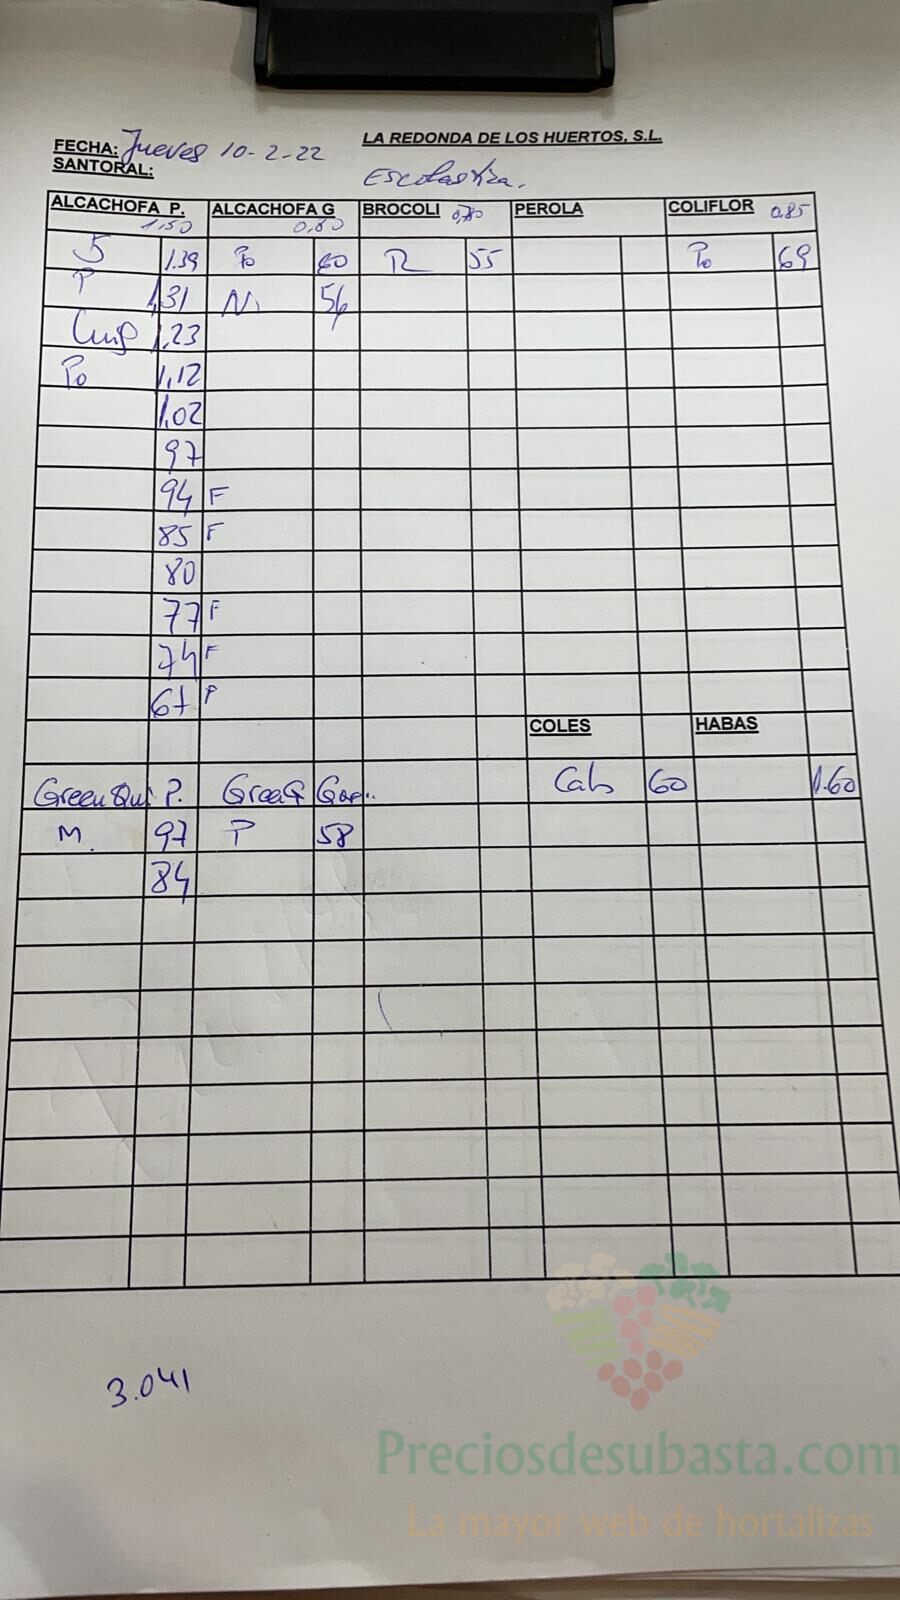 LA REDONDA DE LOS HUERTOS, S.L.
FECHA: Jueves 10-2-22
SANTORAL: Escolastica.
ALCACHOFA P. ALCACHOFA G BROCOLI PEROLA COLIFLOR
1,50 0,80 0,80 0,85
5 1.39 Po 60 R 55 Po 69
P 1,31 N 56
1,23
Po 1,12
1,02
97
94 F
85 F
80
77 F
74 F
67 P
COLES HABAS
Green Qui P. Green Q Cab 60 1.60
M. 97 P 58
84
3.041
Preciosdesubasta.com
La mayor web de hortalizas